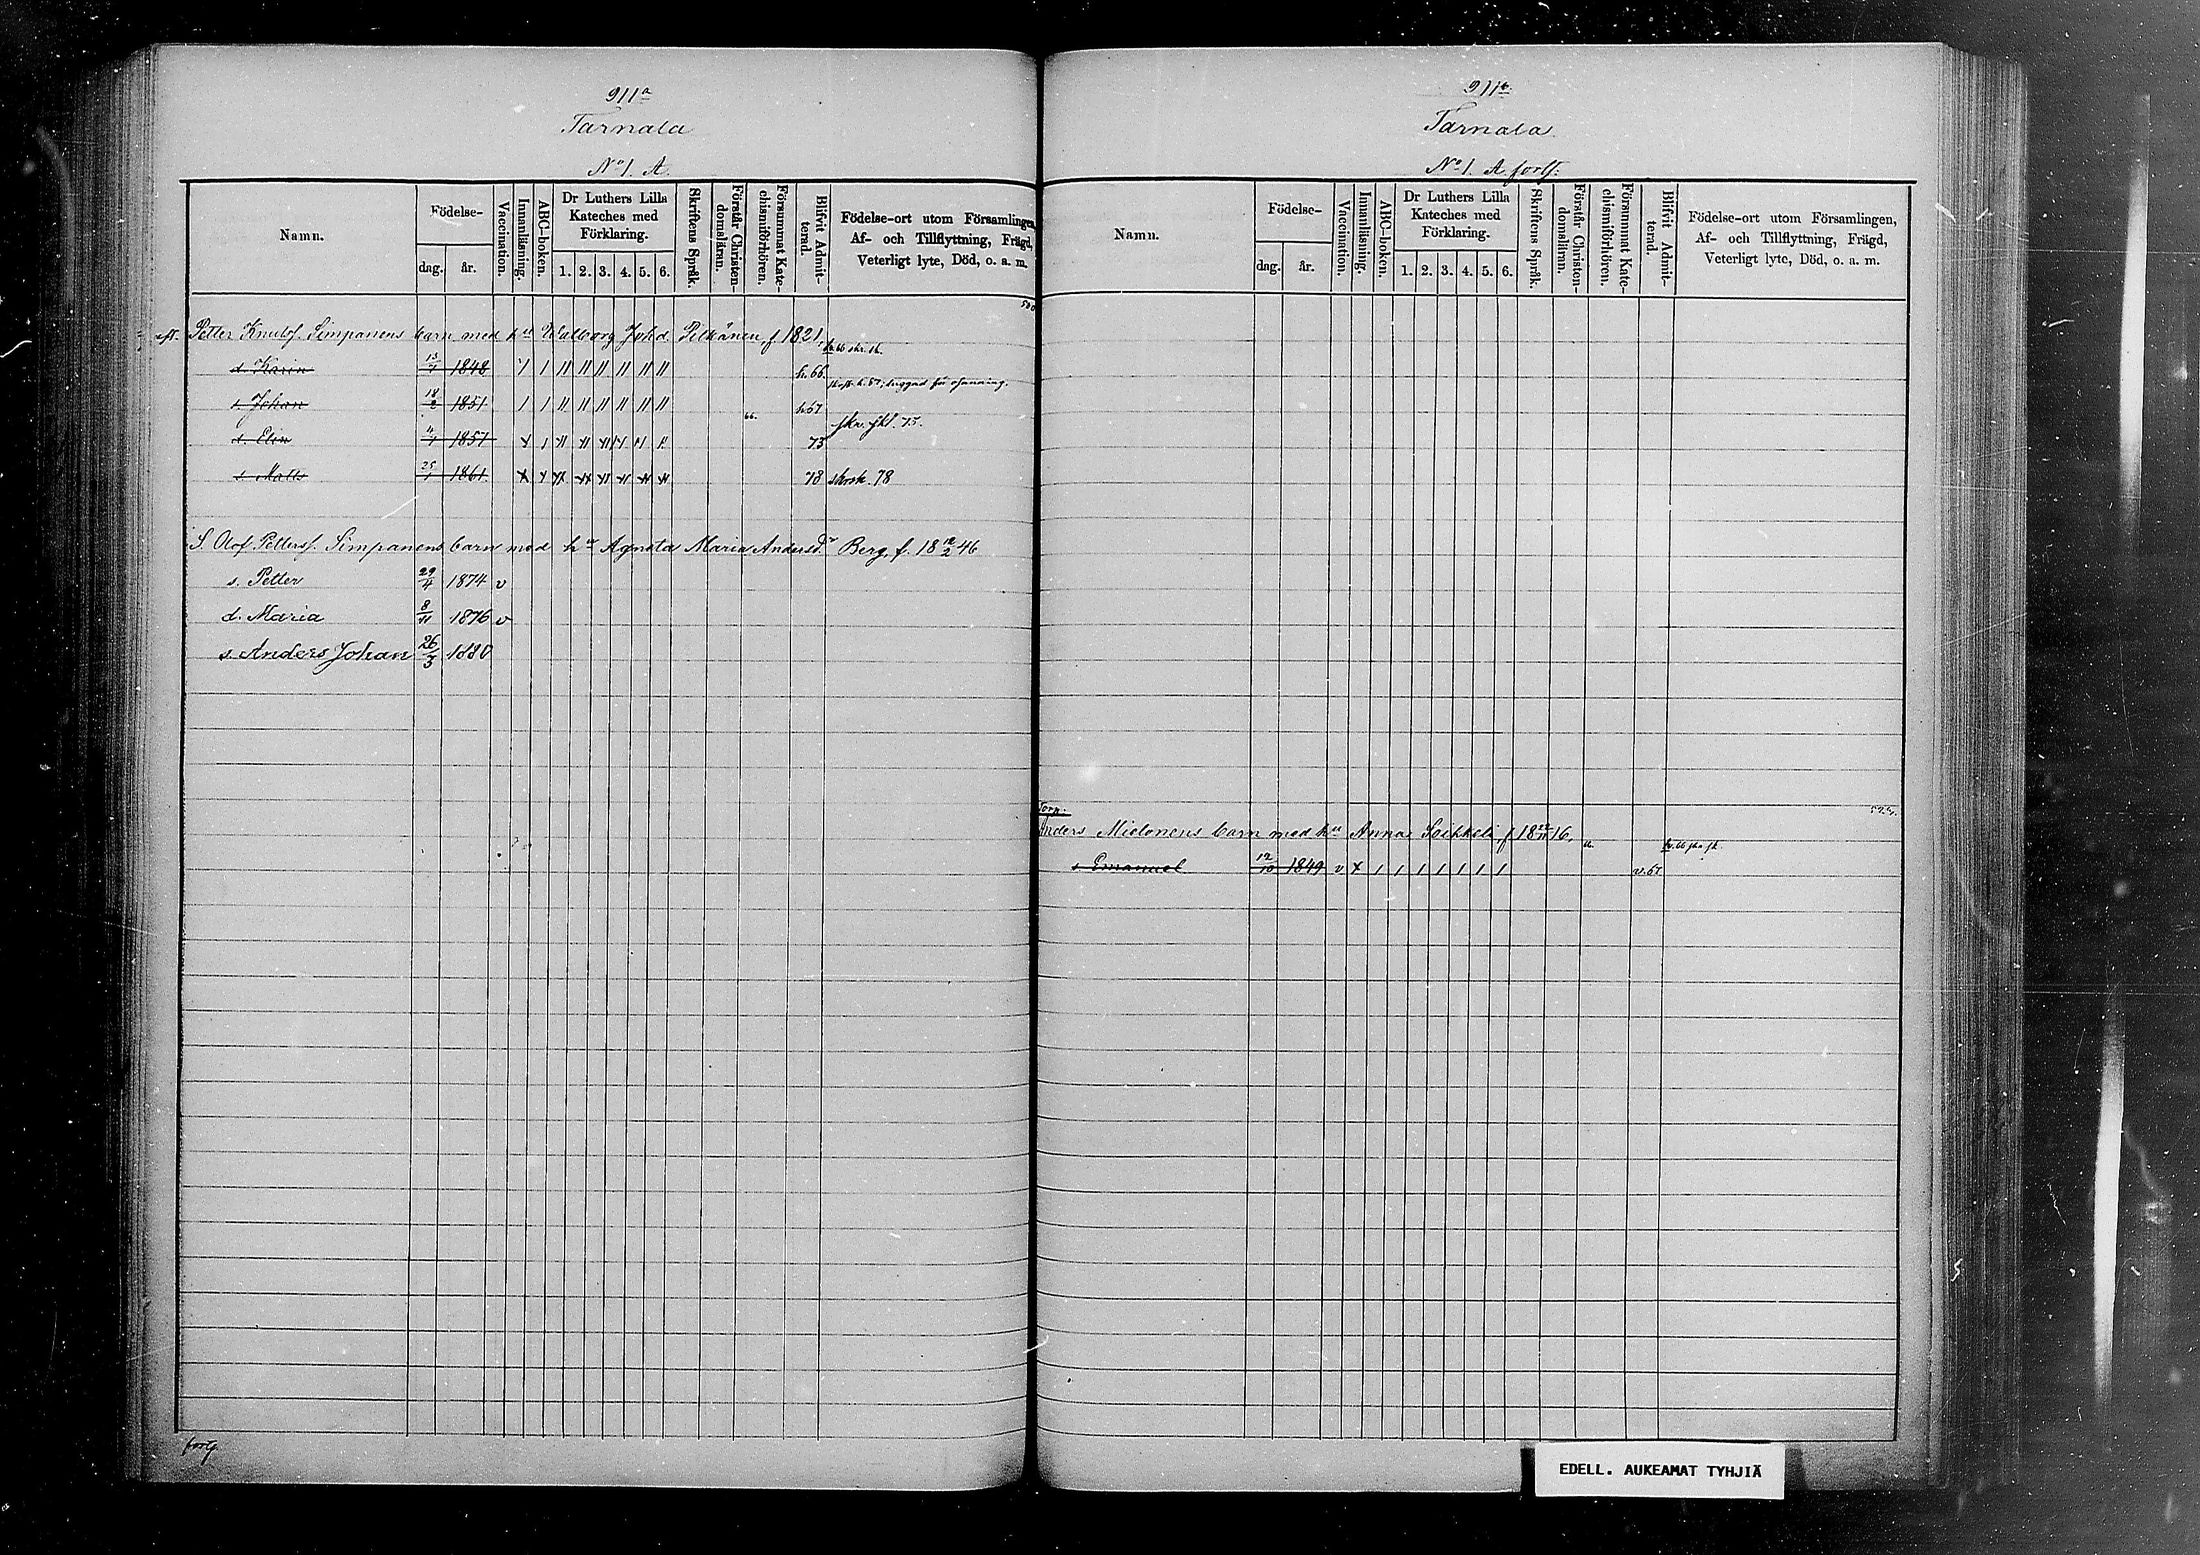 911a
Tarnala
No 1. A.
Namn.
Födelse-
dag.
år.
Vaccination.
Innanläsning.
ABC-boken.
Dr Luthers Lilla
Kateches med
Förklaring.
1. 2. 3. 4. 5. 6.
Skriftens Språk.
Förstår Christen-
domsläran.
Försummat Kate-
chismiförhören.
Blifvit Admit-
terad.
Födelse-ort utom Församlingen,
Af- och Tillflyttning, Frägd,
Veterligt lyte, Död, o. a. m.
Petter Knutsf. Simpanens barn med hu Walborg Joh.d. Pelkänen, f 1821,
d. Karin 1848 h. 66.
s. Johan 18/2 1851 h 67
66.
s. Elin 1857 73
s. Matts 25/1 1861 78 78
S. Olof Petterss. Simpanens barn med hu Agneta Maria Andersd.r Berg, f. 18 12/2 46
s. Petter 29/4 1874 v
d. Maria 8/11 1876 v
s. Anders Johan 26/3 1880
fortf.
911b.
Tarnala
No 1. A fortf:
Namn.
Födelse-
dag.
år.
Vaccination.
Innanläsning.
ABC-boken.
Dr Luthers Lilla
Kateches med
Förklaring.
1. 2. 3. 4. 5. 6.
Skriftens Språk.
Förstår Christen-
domsläran.
Försummat Kate-
chismiförhören.
Blifvit Admit-
terad.
Födelse-ort utom Församlingen,
Af- och Tillflyttning, Frägd,
Veterligt lyte, Död, o. a. m.
Torp.
Anders Mielonens barn med hu Anna Soikkeli, f 18 16,
s Emanuel 12/10 1849 v
EDELL. AUKEAMAT TYHJIÄ